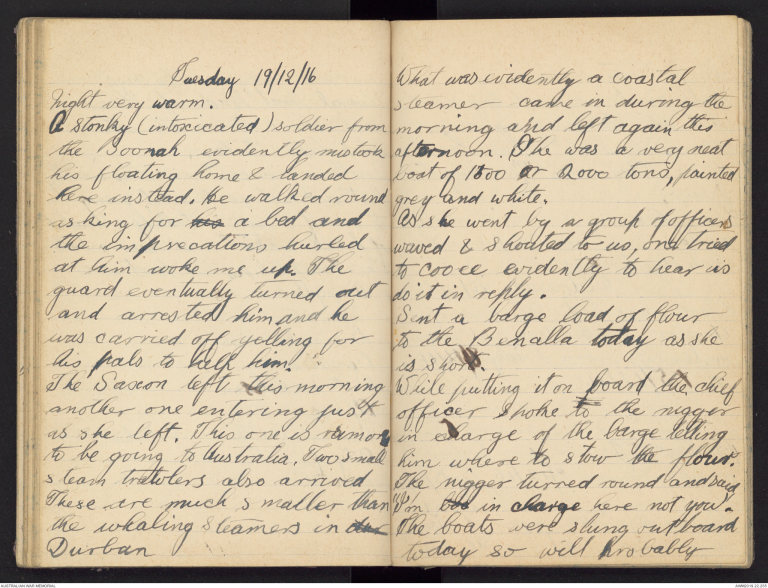 Tuesday 19/12/16
Night very warm.
A stonky (intoxicated) soldier from
the Boonah evidently mistook
his floating home & landed
here instead. He walked round
asking for his a bed and
the imprecations hurled
at him woke me up. The
guard eventually turned out
and arrested him and he
was carried off yelling for
his pals to help him.
The Saxon left this morning
another one entering just
as she left. This one is rumored
to be going to Australia. Two small
steam trawlers also arrived
These are much smaller than
the whaling steamers in our
Durban
What was evidently a coastal
steamer came in during the
morning and left again this
afternoon. She was a very neat
boat of 1500 or 2000 tons, painted
grey and white.
As she went by a group of officers
waved & shouted to us, one tried
to cooee evidently to hear us
do it in reply.
Sent a barge load of flour
to the Benalla today as she
is short.
While putting it on board the chief
officer spoke to the nigger
in charge of the barge telling
him where to stow the flour.
The nigger turned round and said
"I'm in charge here not you".
The boats were slung outboard
today so will probably
AUSTRALIAN WAR MEMORIAL